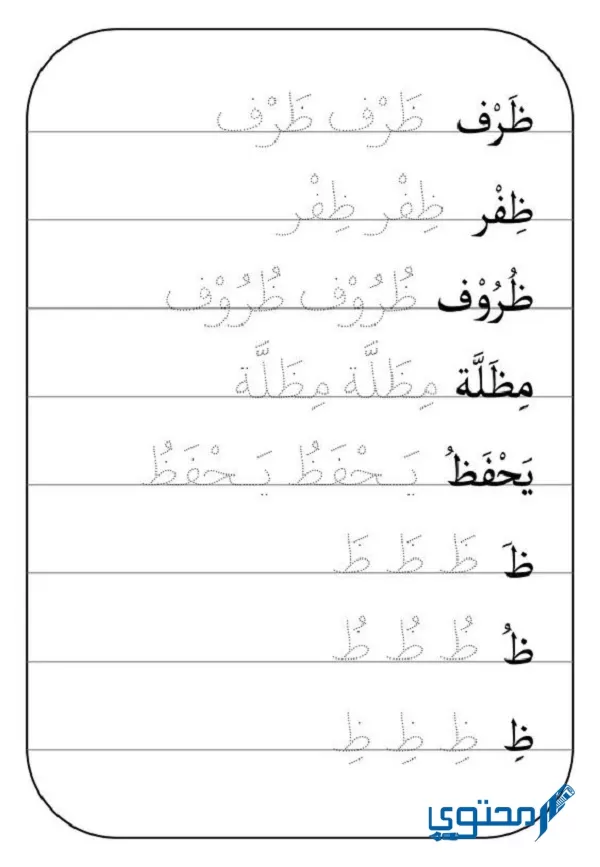 ظَرْف ظَرْف ظَرْف
ظِفْر ظِفْر ظِفْر
ظُرُوْف ظُرُوْف ظُرُوْف
مِظَلَّة مِظَلَّة مِظَلَّة
يَحْفَظُ يَحْفَظُ يَحْفَظُ
ظَ ظَ ظَ ظَ
ظُ ظُ ظُ ظُ
ظِ ظِ ظِ ظِ
محتوى